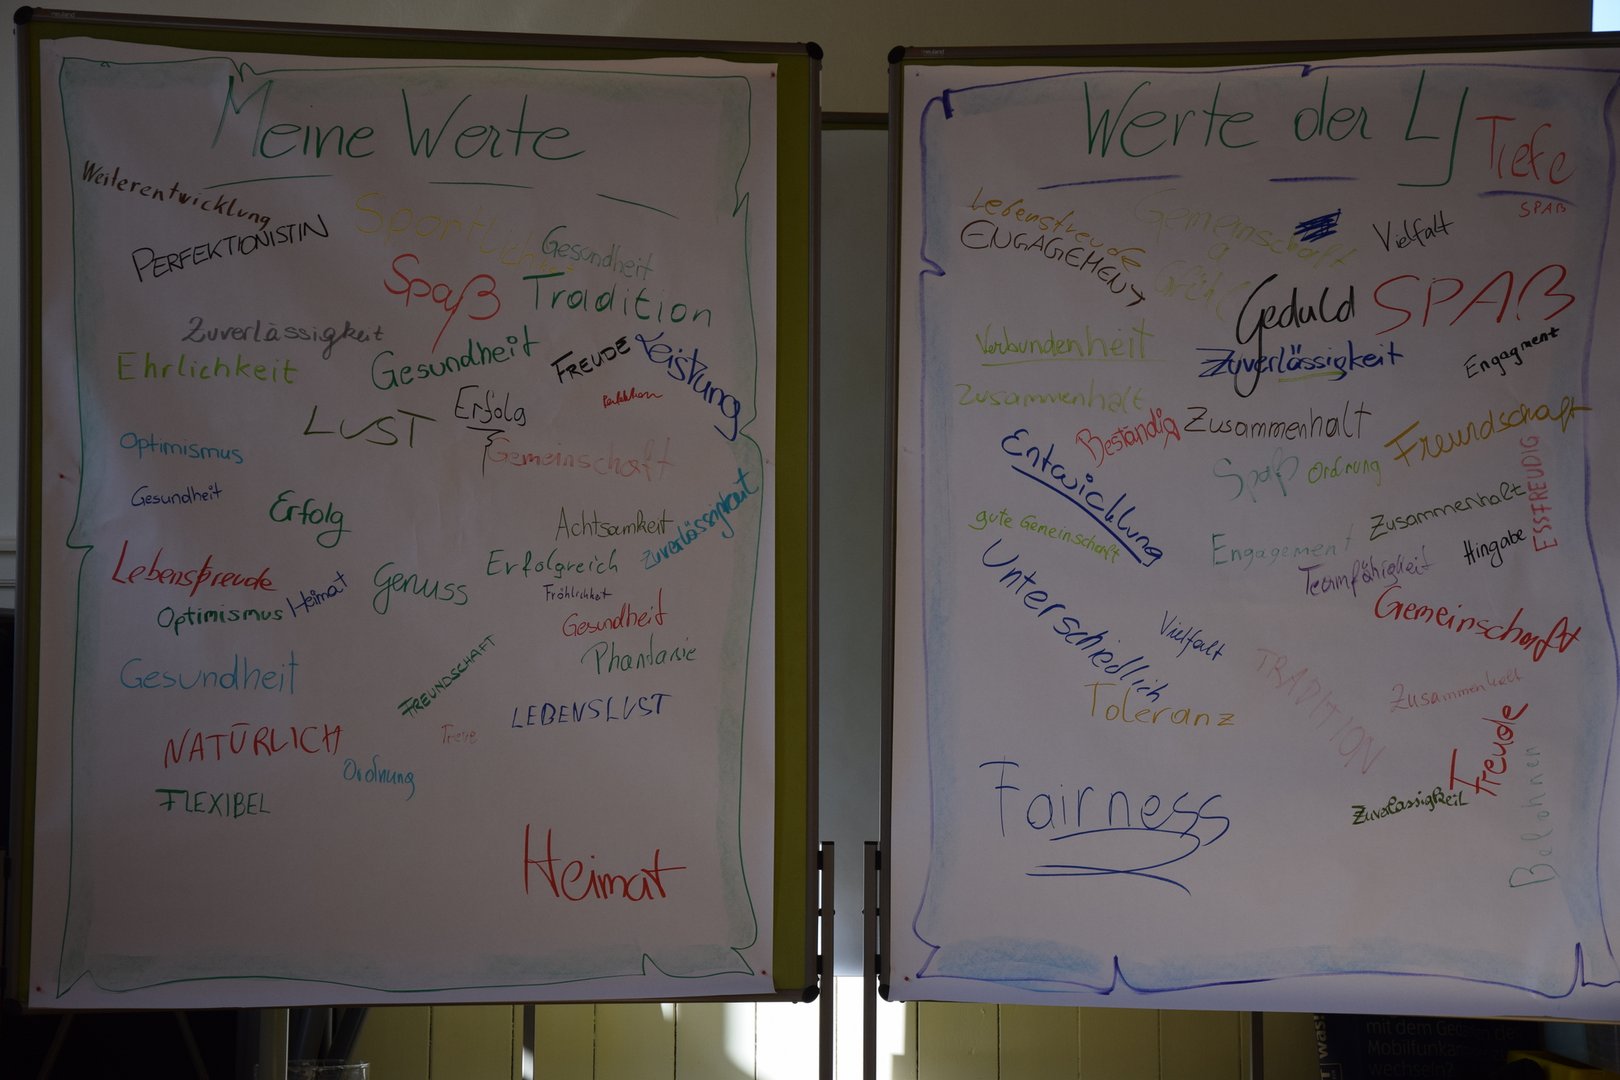 Meine Werte
Weiterentwicklung
PERFEKTIONISTIN
Sportlichkeit
Gesundheit
Spaß
Tradition
Zuverlässigkeit
Ehrlichkeit
Gesundheit
FREUDE
Leistung
LUST
Erfolg
Optimismus
Gemeinschaft
Gesundheit
Erfolg
Achtsamkeit
Zuverlässigkeit
Lebensfreude
Heimat
Genuss
Erfolgreich
Fröhlichkeit
Optimismus
Gesundheit
Phantasie
Gesundheit
FREUNDSCHAFT
LEBENSLUST
NATÜRLICH
Treue
Ordnung
FLEXIBEL
Heimat
Werte der LJ
Tiefe
SPAß
Lebensfreude
Gemeinschaft
Vielfalt
ENGAGEMENT
Geduld
SPAß
Verbundenheit
Zuverlässigkeit
Engagment
Zusammenhalt
Beständig
Zusammenhalt
Freundschaft
Entwicklung
Spaß
Ordnung
ESSFREUDIG
gute Gemeinschaft
Zusammenhalt
Engagement
Hingabe
Unterschiedlich
Teamfähigkeit
Gemeinschaft
Vielfalt
TRADITION
Zusammenhalt
Toleranz
Freude
Fairness
Zuverlässigkeit
Belohnen
was!
mit dem
Mobilfunk
wechseln?